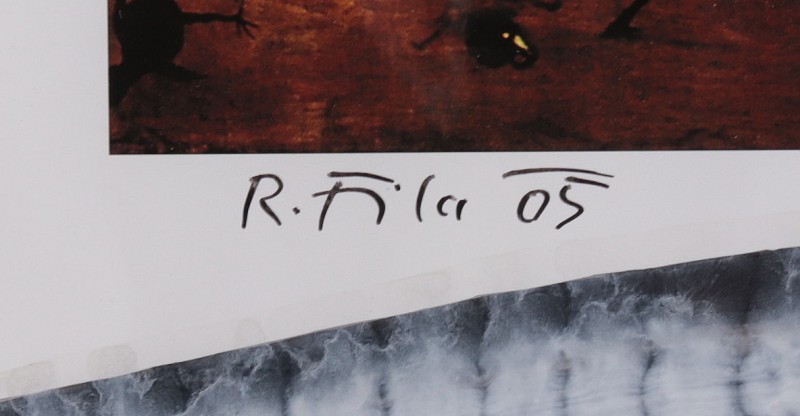 R. Fila 05